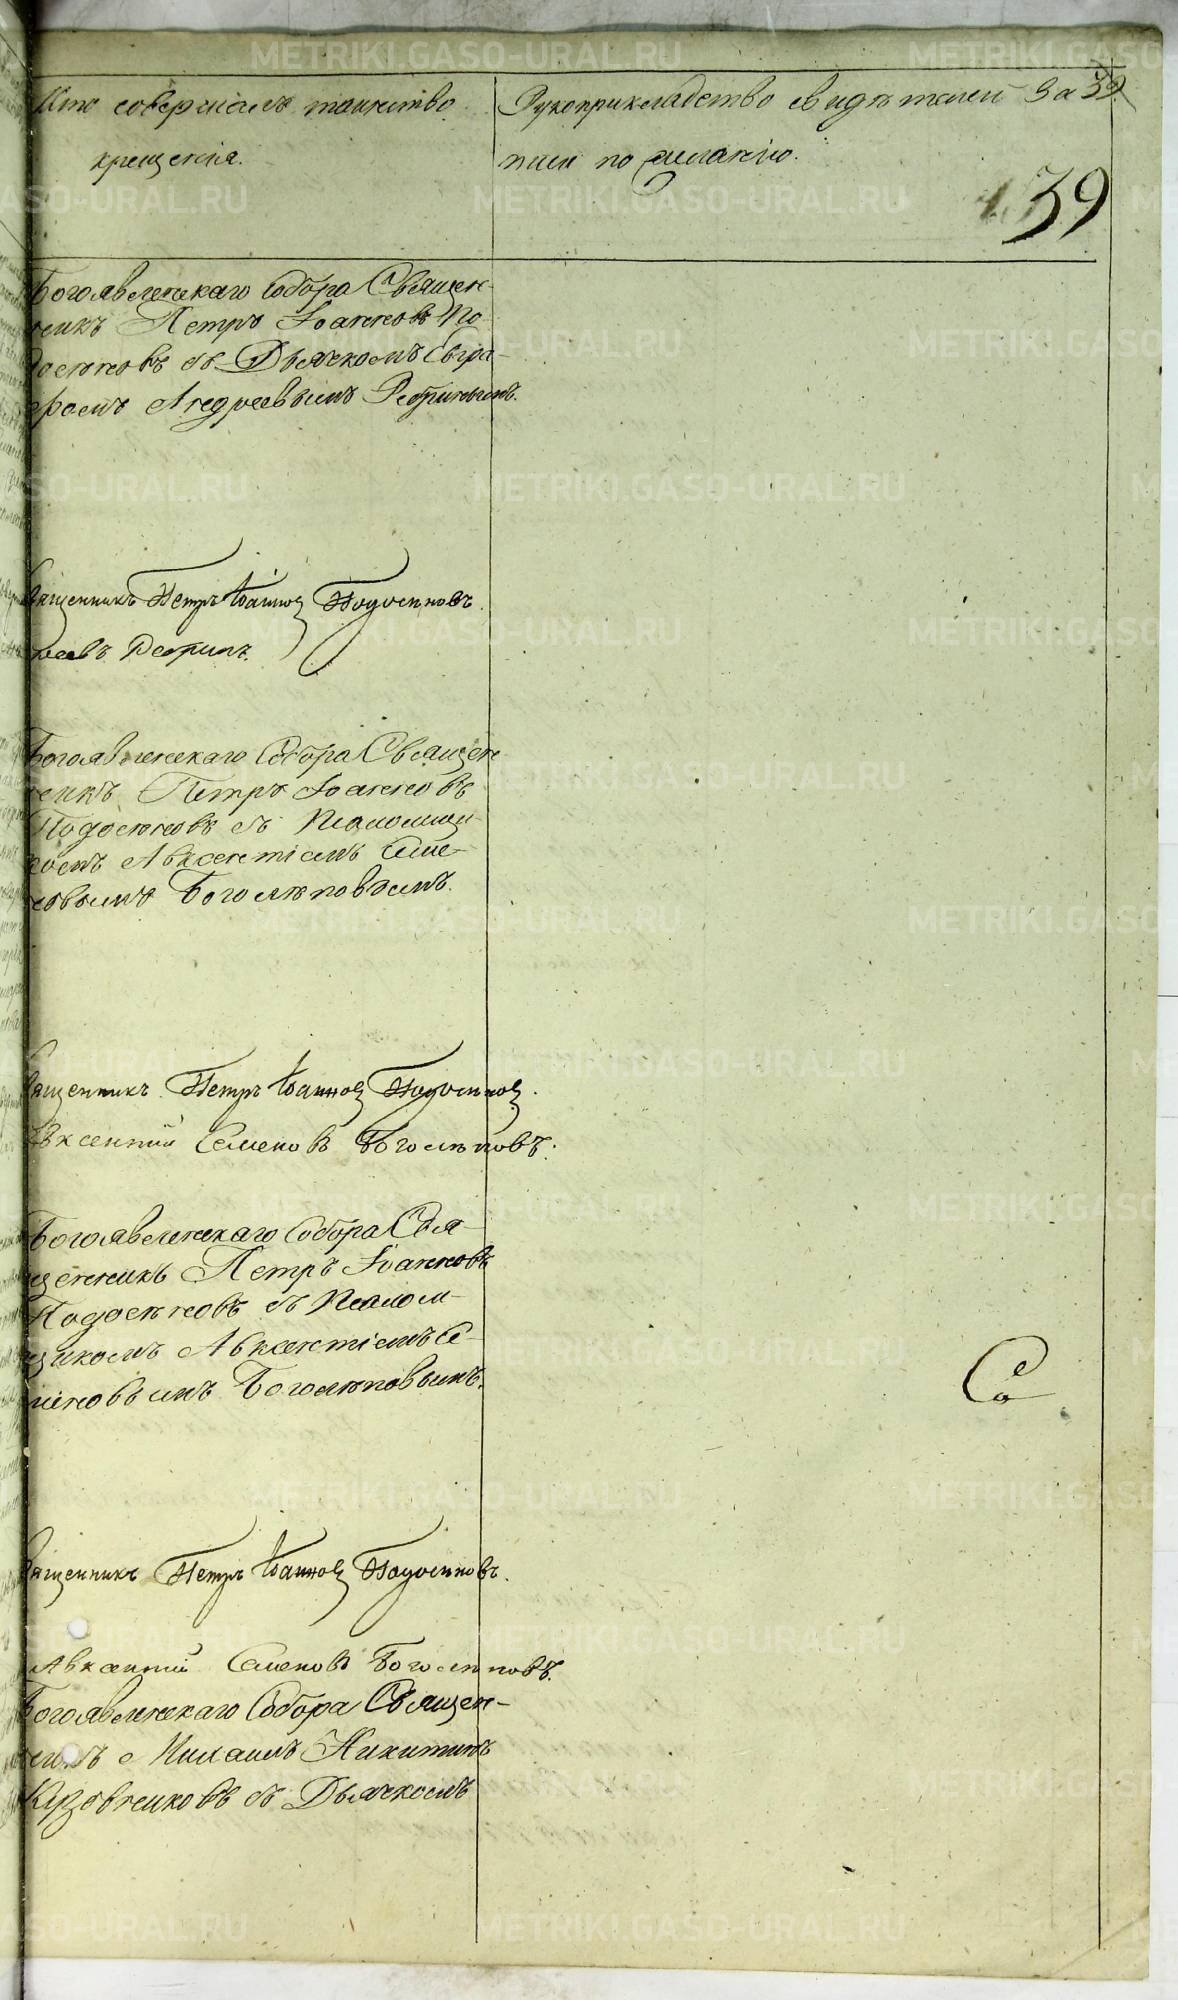 Кто совершалъ таинство
крещенія.
Рукоприкладство свидѣтелей за
писи по желанію.
39
39
Богоявленскаго Собора Священ-
никъ Петръ Іоанновъ По-
досеновъ съ Дьячкомъ Евгра-
фомъ Андреевымъ Ребринымъ.
Священникъ Петръ Іоанновъ Подосеновъ.
реевъ Ребринъ.
Богоявленскаго Собора Священ
никъ Петръ Іоанновъ
Подосеновъ съ Псаломщи-
комъ Авксентіемъ Семе-
новымъ Боголѣповымъ.
Священникъ Петръ Іоанновъ Подосеновъ.
Авксентій Семеновъ Боголѣповъ.
Богоявленскаго Собора Свя-
щенникъ Петръ Іоанновъ
Подосеновъ съ Псалом-
щикомъ Авксентіемъ Се-
меновымъ Боголѣповымъ.
Священникъ Петръ Іоанновъ Подосеновъ.
Авксентій Семеновъ Боголѣповъ.
Богоявленскаго Собора Священ-
никъ Михаилъ Никитинъ
Кузовниковъ съ Дьячкомъ
METRIKI.GASO-URAL.RU